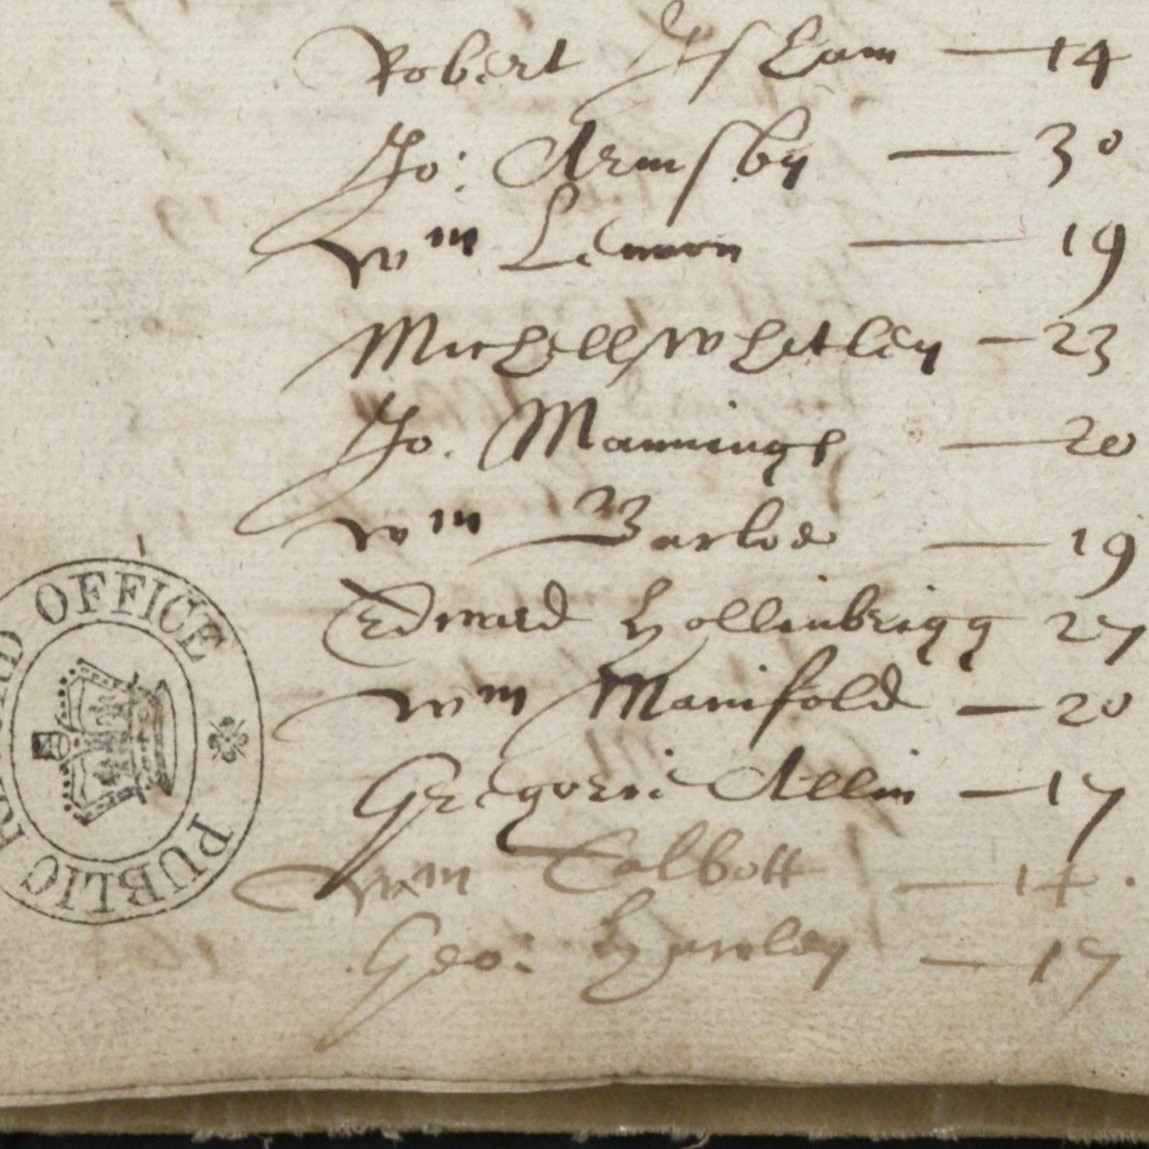 Robert Isham — 14
Jo: Armsby — 30
Wm Lennon — 19
Michell Whitley — 23
Jo. Mannings — 20
Wm Barloe — 19
Edward Hollinbrigg 27
Wm Manifold — 20
Gregorie Allin — 17
Wm Talbott — 14.
Geo: — 17
PUBLIC RECORD OFFICE